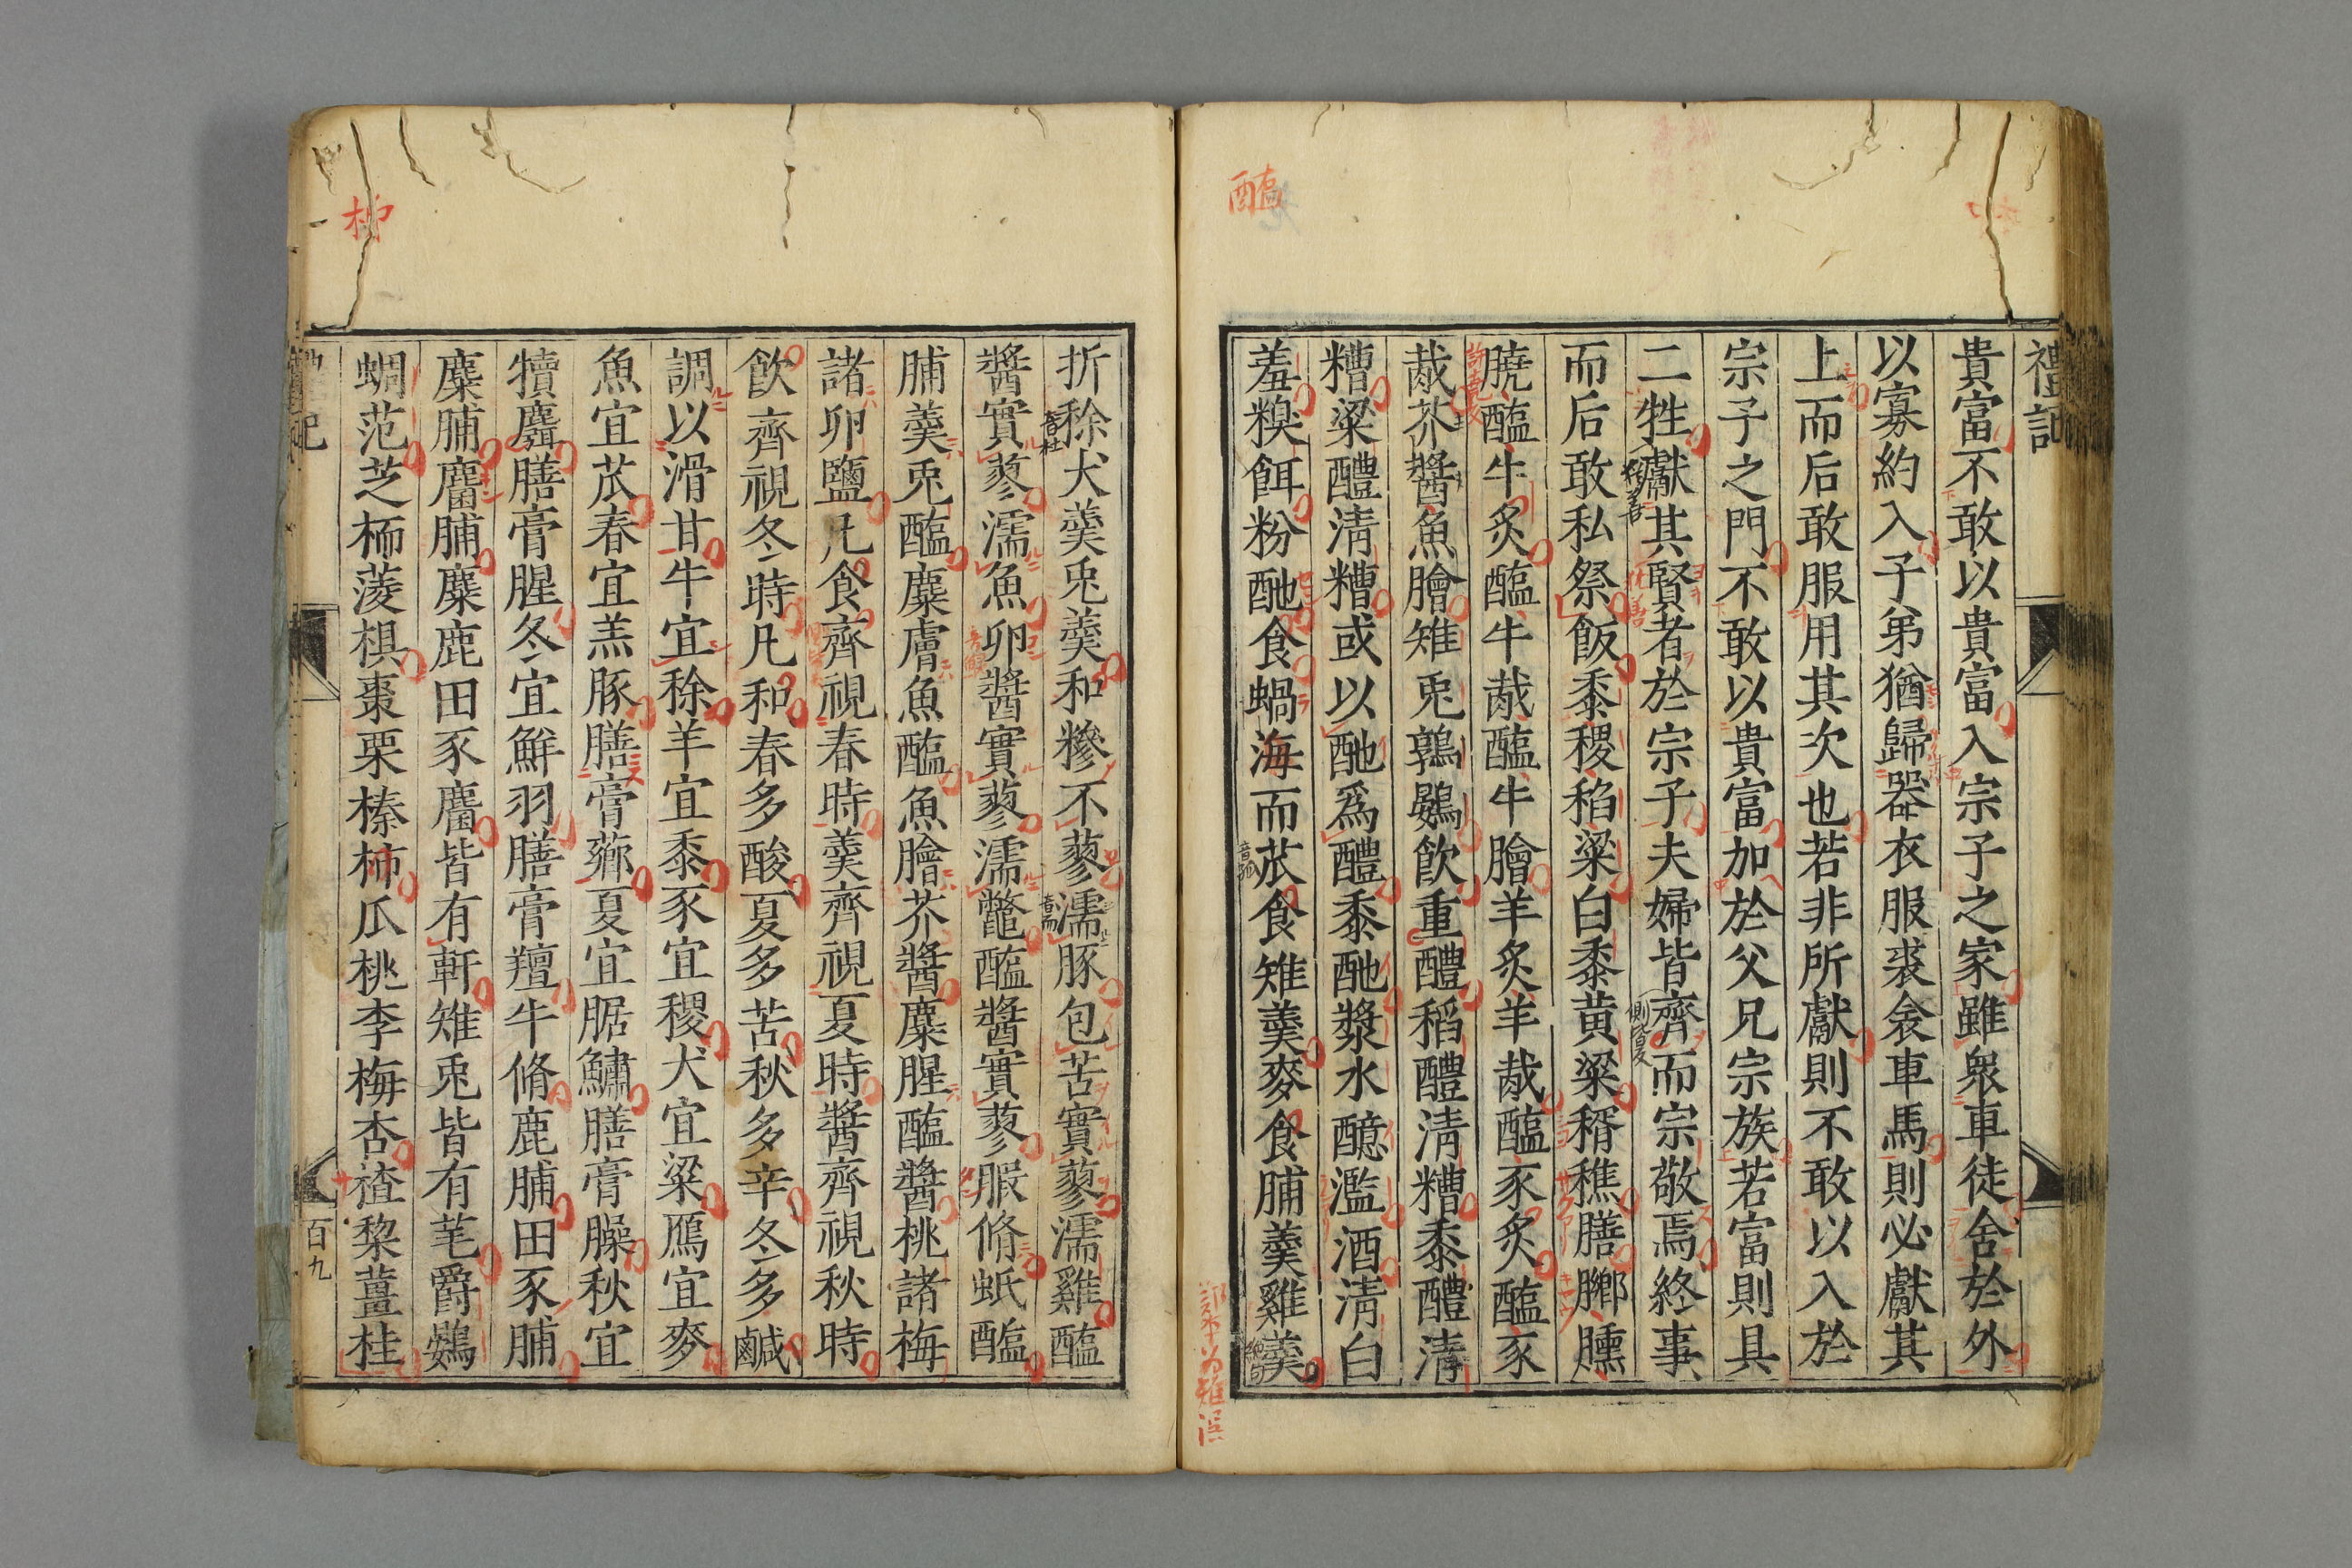 禮記
貴富不敢以貴富入宗子之家雖衆車徒舍於外
以寡約入子弟猶歸器衣服裘衾車馬則必獻其
上而后敢服用其次也若非所獻則不敢以入於
宗子之門不敢以貴富加於父兄宗族若富則具
二牲獻其賢者於宗子夫婦皆齊而宗敬焉終事
而后敢私祭飯黍稷稻粱白黍黄粱稰穛膳膷臐
膮醢牛炙醢牛胾醢牛膾羊炙羊胾醢豕炙醢豕
胾芥醬魚膾雉兎鶉鷃飲重醴稻醴清糟黍醴清
糟粱醴清糟或以酏爲醴黍酏漿水醷濫酒清白
羞糗餌粉酏食蝸海而苽食雉羹麥食脯羹雞羹
醢
折稌犬羹兎羹和糝不蓼濡豚包苦實蓼濡雞醢
醬實蓼濡魚卵醬實蓼濡鼈醢醬實蓼腶脩蚳醢
脯羹兎醢麋膚魚醢魚膾芥醬麋腥醢醬桃諸梅
諸卵鹽凡食齊視春時羹齊視夏時醬齊視秋時
飲齊視冬時凡和春多酸夏多苦秋多辛冬多鹹
調以滑甘牛宜稌羊宜黍豕宜稷犬宜粱鴈宜麥
魚宜苽春宜羔豚膳膏薌夏宜腒鱐膳膏臊秋宜
犢麛膳膏腥冬宜鮮羽膳膏羶牛脩鹿脯田豕脯
麋脯麕脯麋鹿田豕麕皆有軒雉兎皆有芼爵鷃
蜩范芝栭蔆椇棗栗榛柿瓜桃李梅杏楂棃薑桂
百九